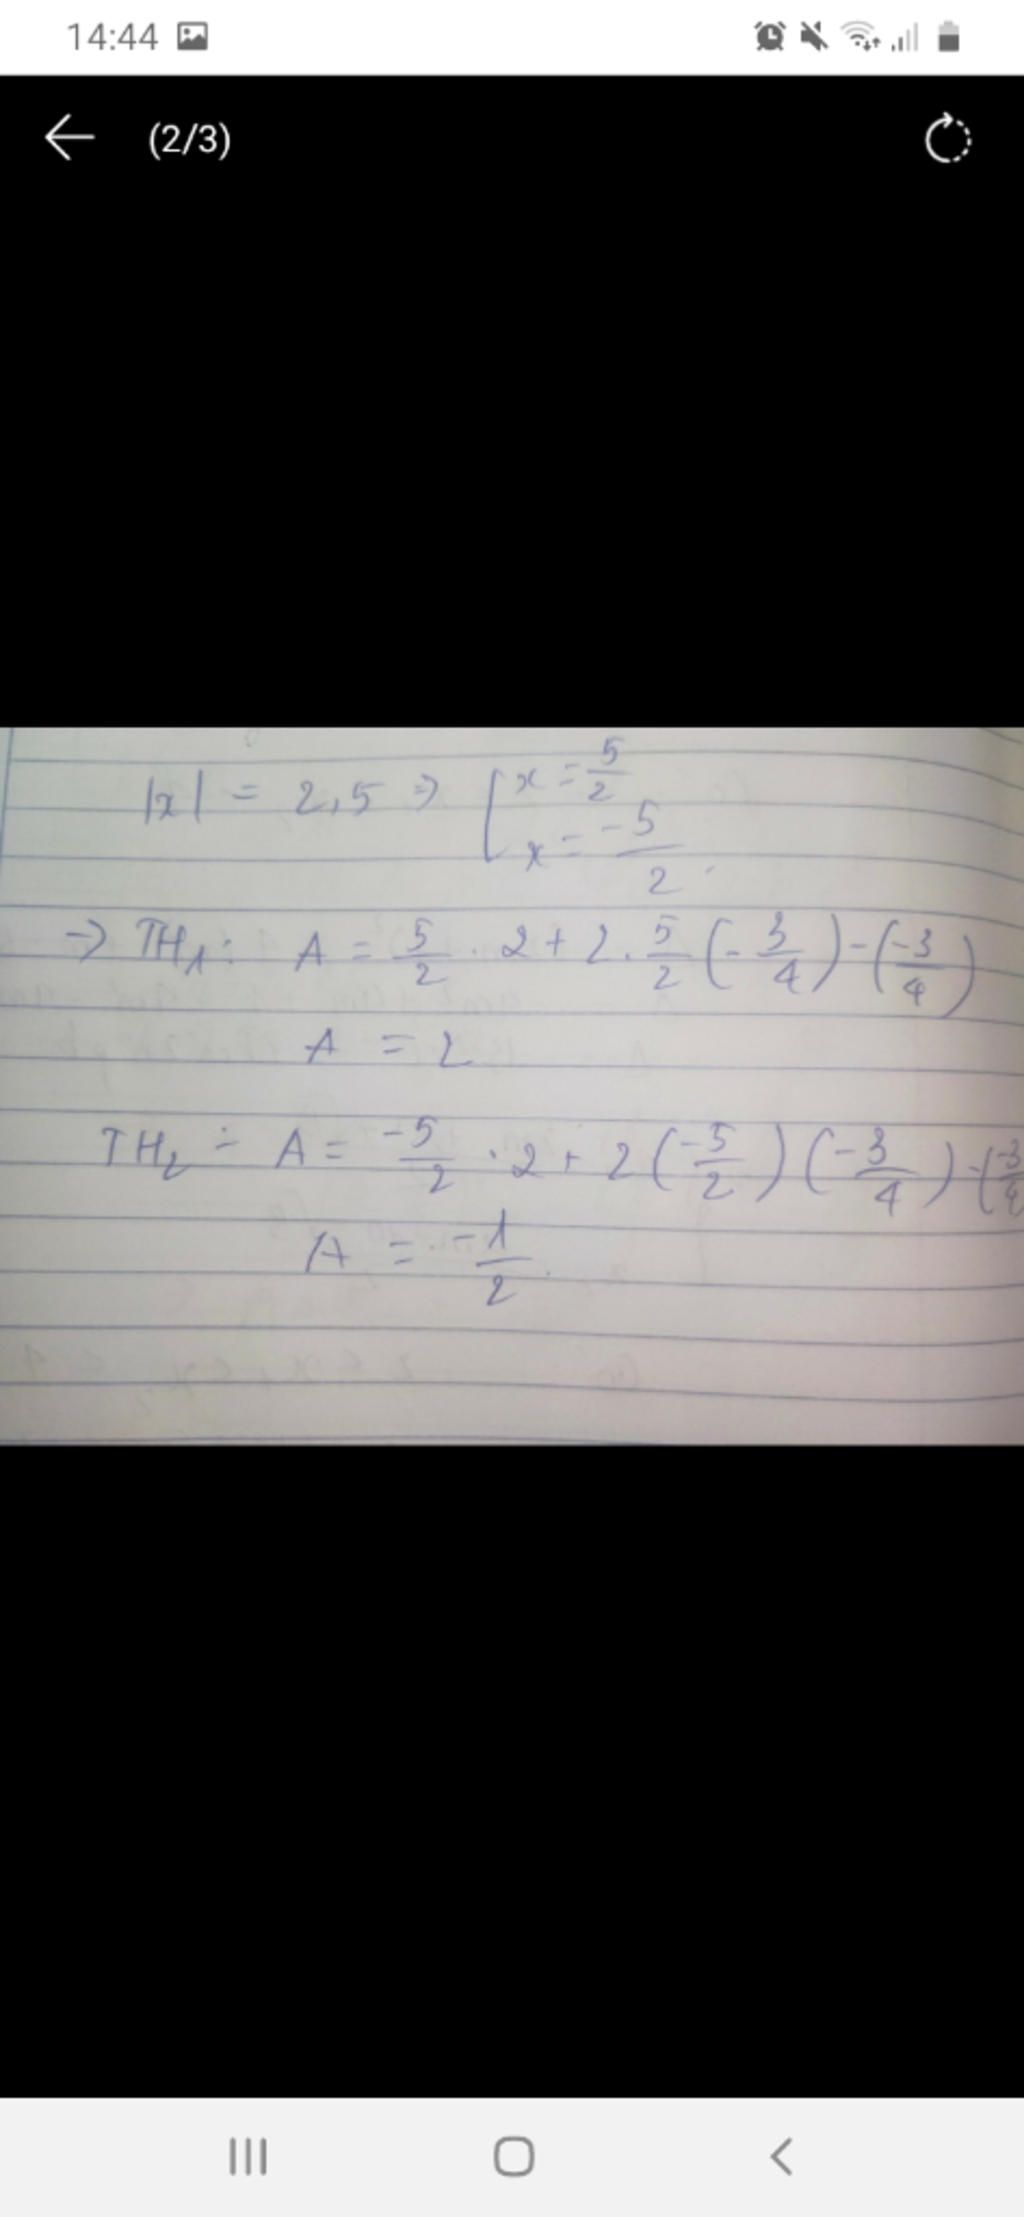 14:44
(2/3)
|x| = 2,5 ⇒ [ x = 5/2
x = -5/2
→ TH1: A = 5/2 . 2 + 2 . 5/2 (-3/4) - (-3/4)
A = 2
TH2: A = -5/2 . 2 + 2 (-5/2) (-3/4) - (-3/4
A = -1/2